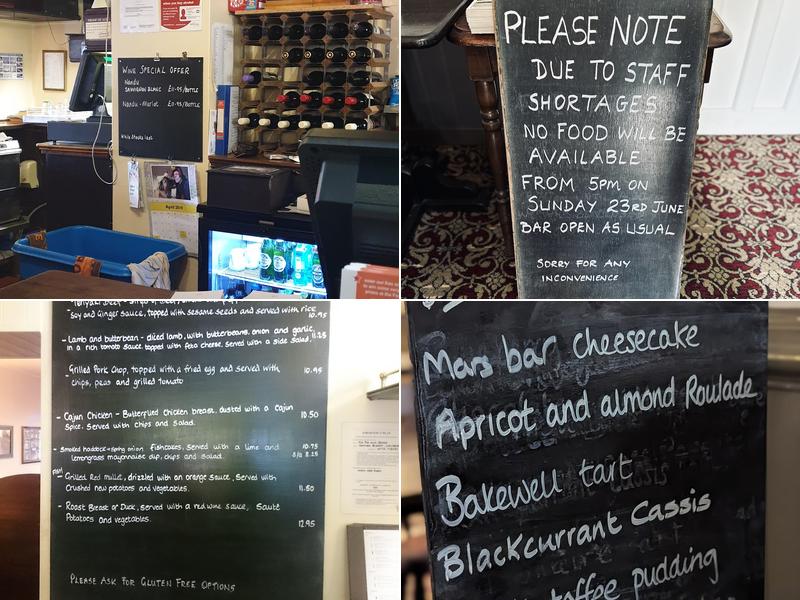 WINE SPECIAL OFFER
NANDU
SAUVIGNON BLANC £11.95/BOTTLE
NANDU - MERLOT £11.95/BOTTLE
While Stocks last
April
PLEASE NOTE
DUE TO STAFF
SHORTAGES
NO FOOD WILL BE
AVAILABLE
FROM 5PM ON
SUNDAY 23RD JUNE
BAR OPEN AS USUAL
SORRY FOR ANY
INCONVENIENCE
Soy and Ginger sauce, topped with sesame seeds and served with rice
10.95
- Lamb and butterbean - diced lamb, with butterbeans, onion and garlic,
in a rich tomato sauce topped with feta cheese, served with a side salad. 11.25
Grilled Pork Chop, topped with a fried egg and served with 10.95
chips, peas and grilled tomato
- Cajun Chicken - Butterflied chicken breast, dusted with a Cajun 10.50
Spice. Served with chips and salad.
- Smoked haddock + spring onion fishcakes, served with a lime and 10.75
lemongrass mayonnaise dip, chips and salad. 8.25
- Grilled Red mullet, drizzled with an orange sauce, served with
Crushed new potatoes and vegetables. 11.50
- Roast Breast of Duck, served with a red wine sauce, Sauté
Potatoes and vegetables. 12.95
PLEASE ASK FOR GLUTEN FREE OPTIONS
Mars bar cheesecake
Apricot and almond Roulade
Bakewell tart
Blackcurrant Cassis
toffee pudding